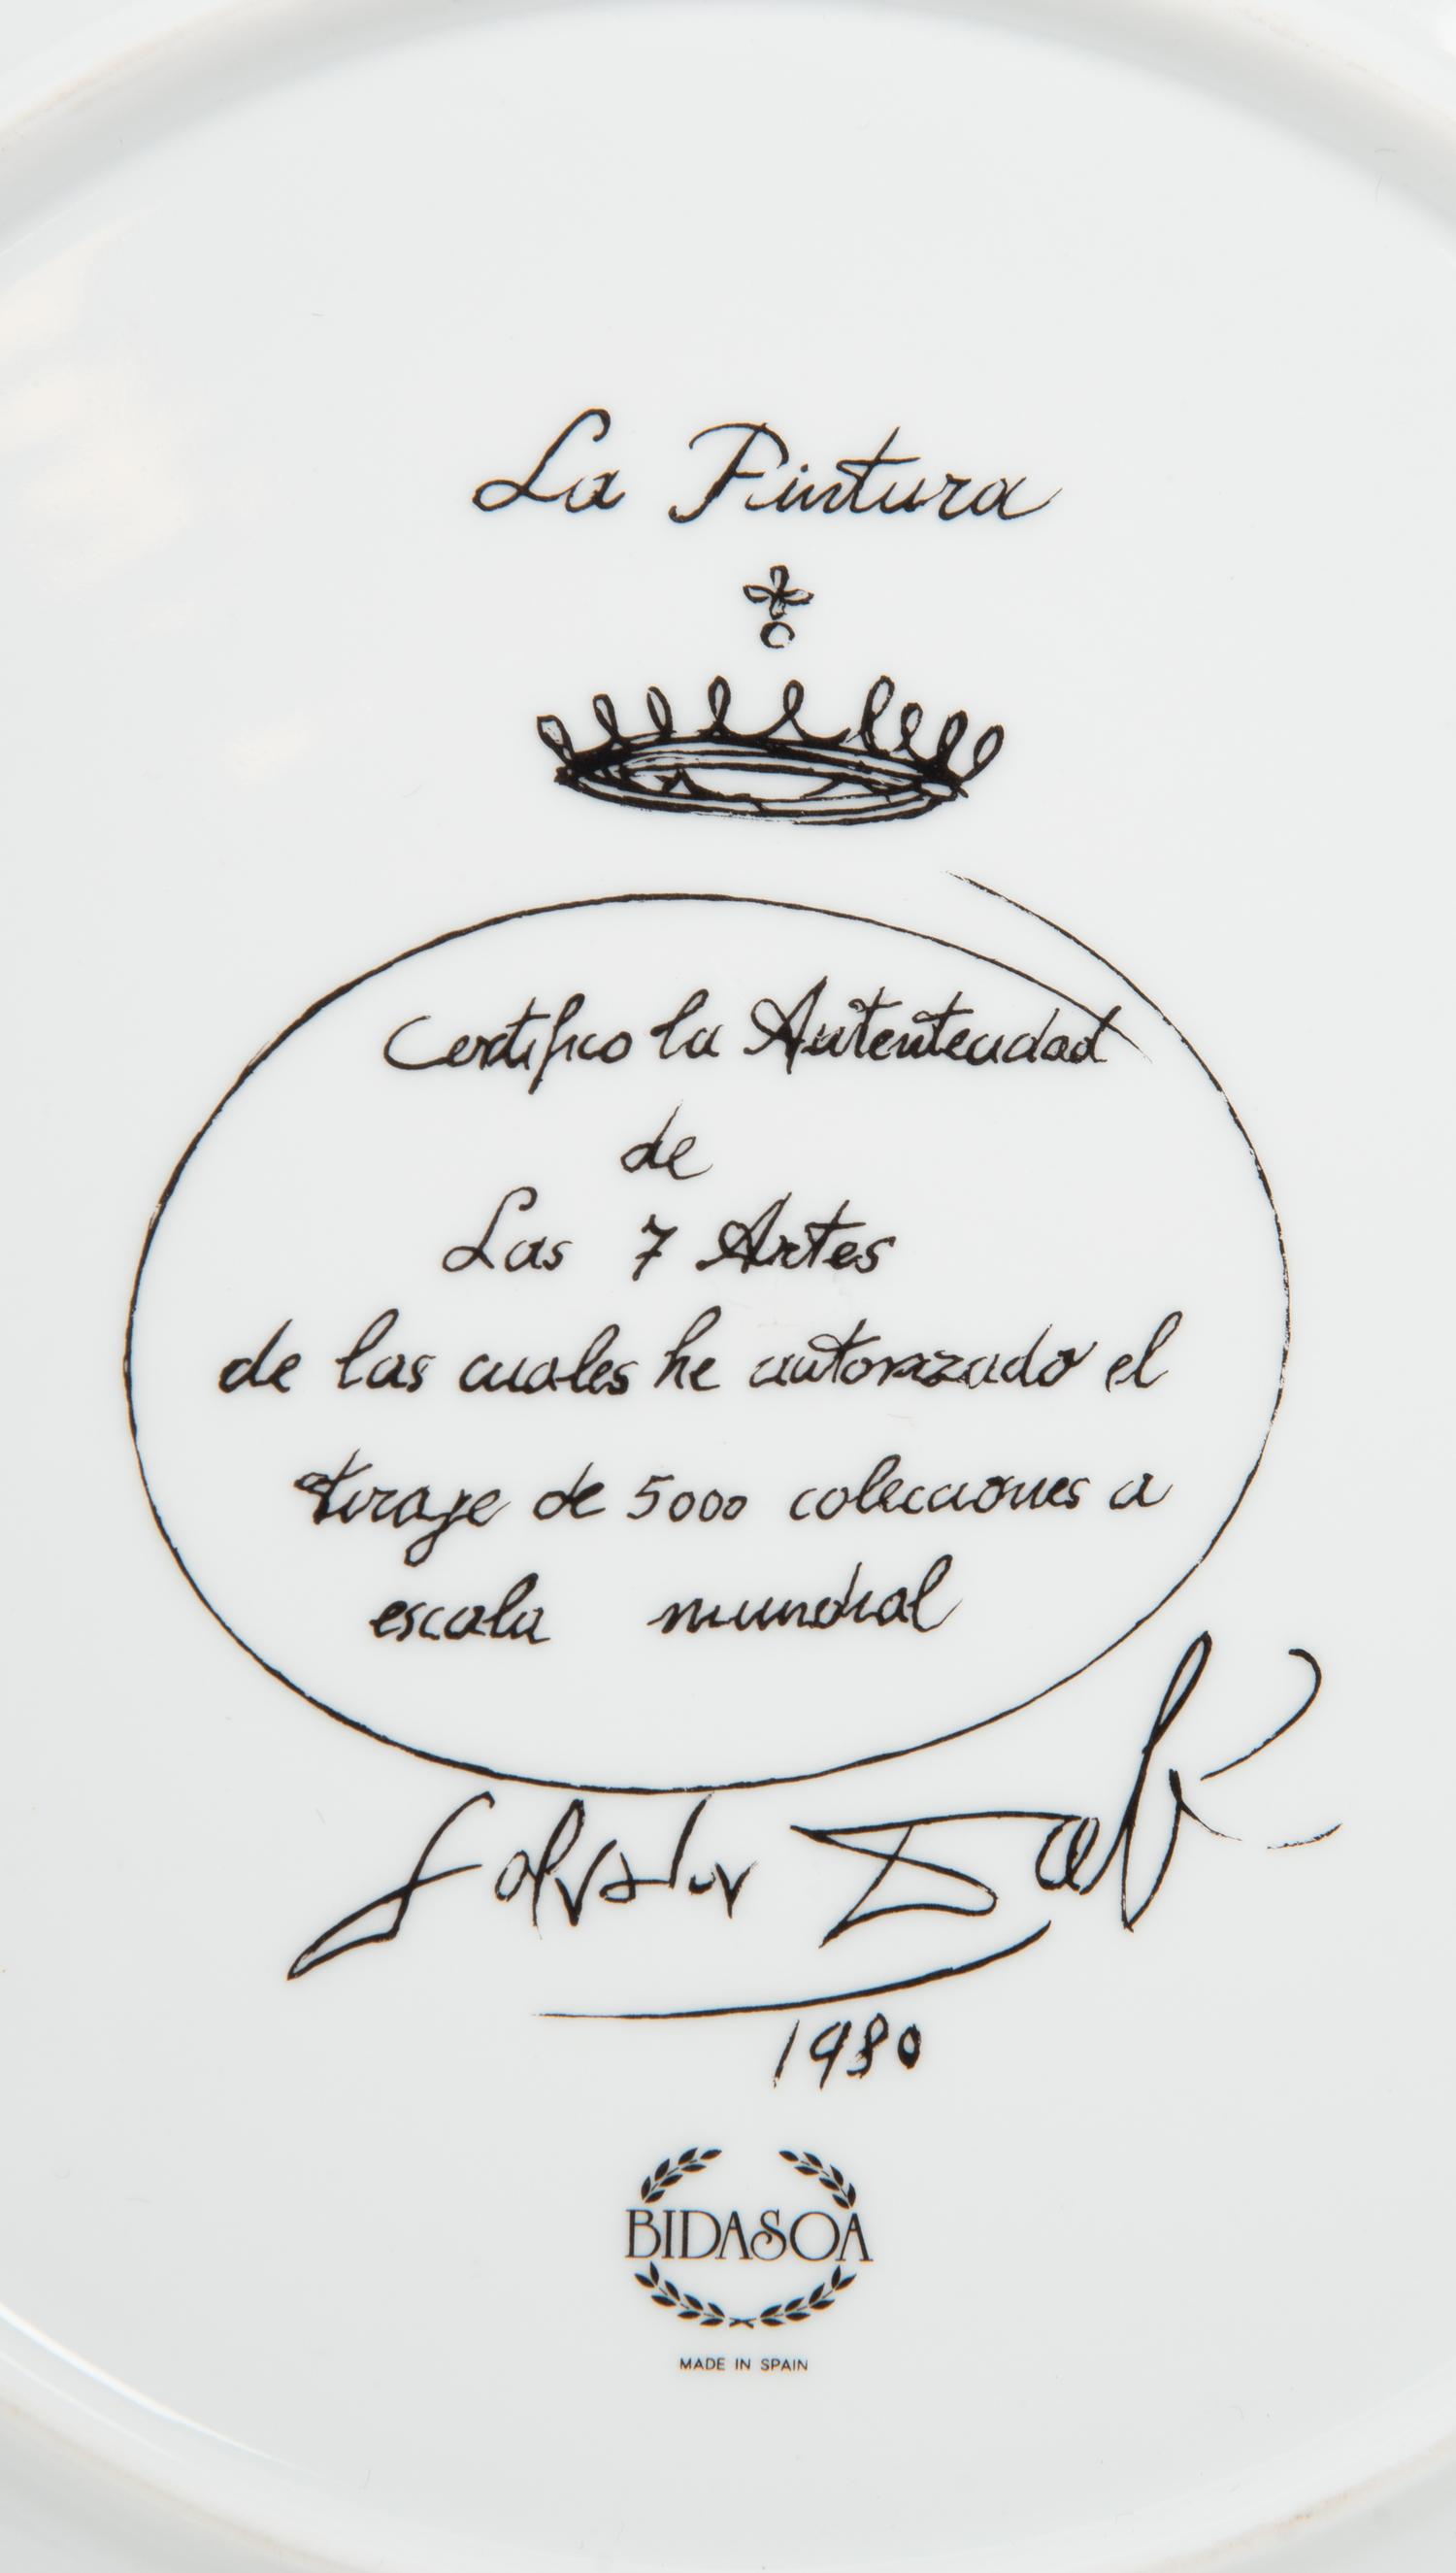 La Pintura
Certifico la Autenticidad
de
Las 7 Artes
de las cuales he autorizado el
tiraje de 5000 colecciones a
escala mundial
Salvador Dalí
1980
BIDASOA
MADE IN SPAIN